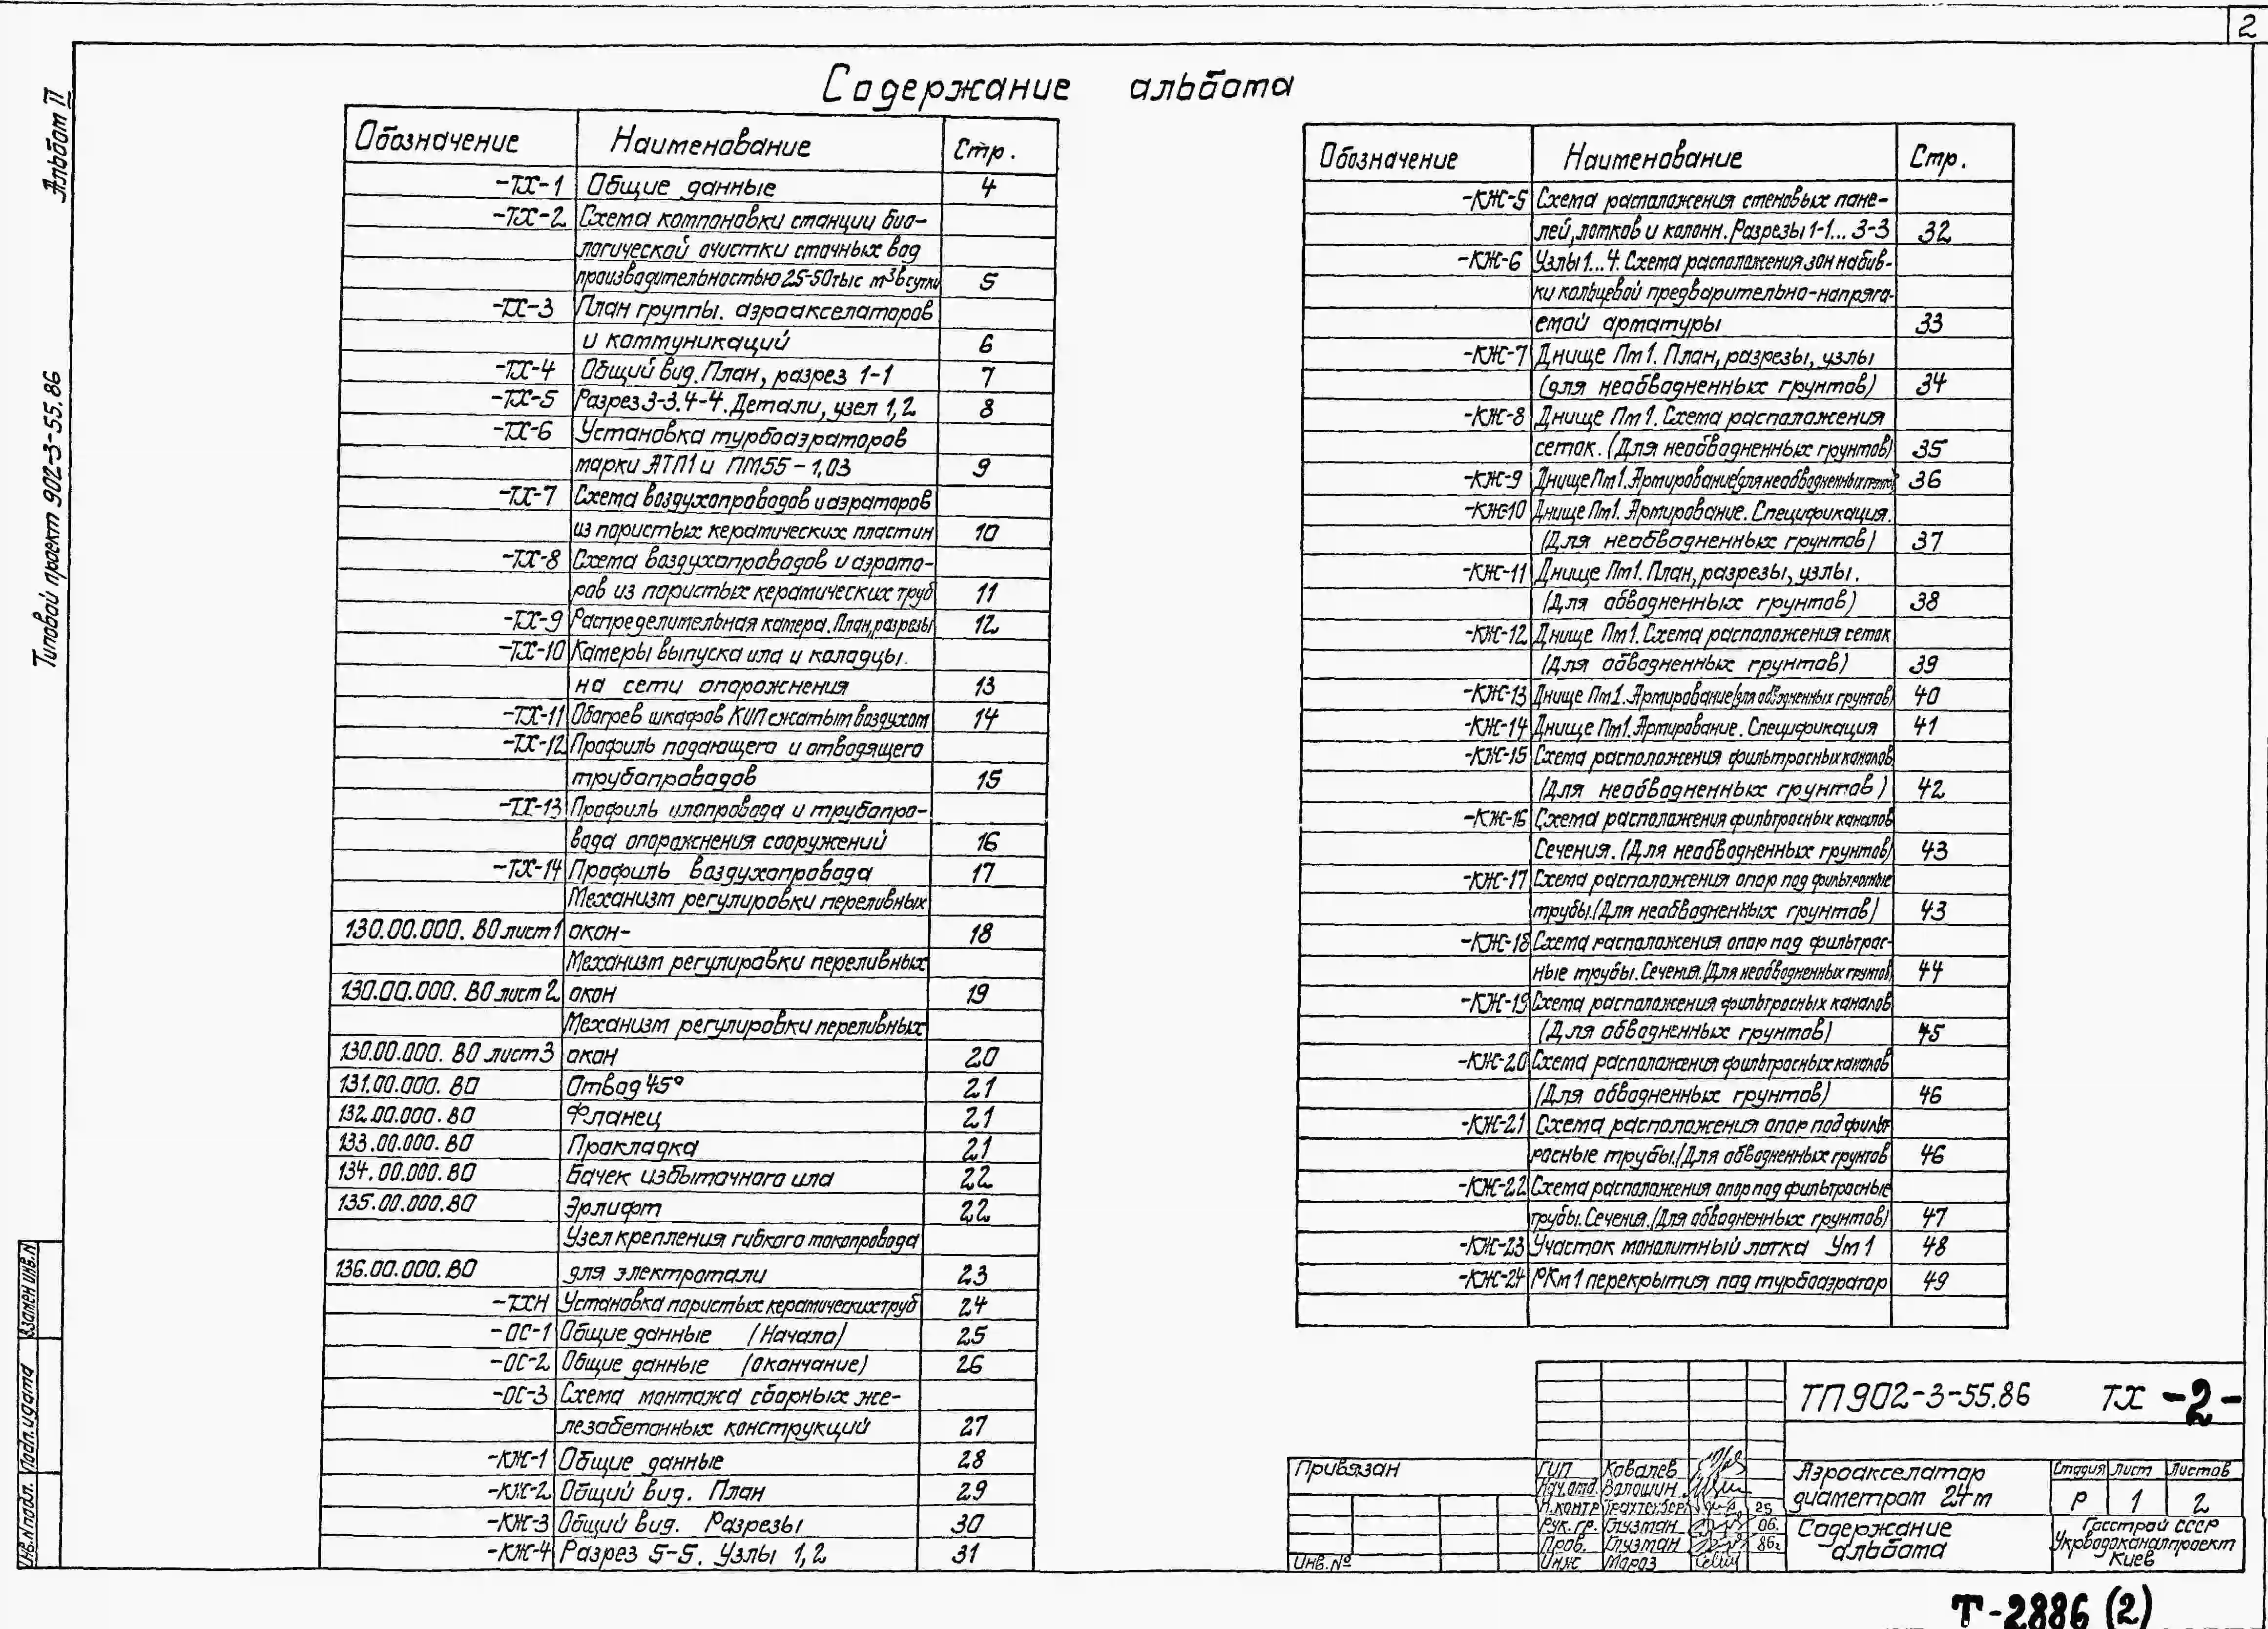 2
Альбом II
Типовой проект 902-3-55.86
Содержание альбома
Обозначение Наименование Стр.
-ТХ-1 Общие данные 4
-ТХ-2 Схема компоновки станции био-
логической очистки сточных вод
производительностью 25-50 тыс м³ в сутки 5
-ТХ-3 План группы. аэроакселаторов
и коммуникаций 6
-ТХ-4 Общий вид. План, разрез 1-1 7
-ТХ-5 Разрез 3-3. 4-4. Детали, узел 1,2 8
-ТХ-6 Установка турбоаэраторов
марки АТП1 и ПМ55-1,03 9
-ТХ-7 Схема воздухопроводов и аэраторов
из пористых керамических пластин 10
-ТХ-8 Схема воздухопроводов и аэрато-
ров из пористых керамических труб 11
-ТХ-9 Распределительная камера. План, разрезы 12
-ТХ-10 Камеры выпуска ила и колодцы.
на сети опорожнения 13
-ТХ-11 Обогрев шкафов КИП сжатым воздухом 14
-ТХ-12 Профиль подающего и отводящего
трубопроводов 15
-ТХ-13 Профиль илопровода и трубопро-
вода опорожнения сооружений 16
-ТХ-14 Профиль воздухопровода 17
Механизм регулировки переливных
130.00.000. ВО лист 1 окон- 18
Механизм регулировки переливных
130.00.000. ВО лист 2 окон 19
Механизм регулировки переливных
130.00.000. ВО лист 3 окон 20
131.00.000. ВО Отвод 45° 21
132.00.000. ВО Фланец 21
133.00.000. ВО Прокладка 21
134.00.000. ВО Бачек избыточного ила 22
135.00.000. ВО Эрлифт 22
Узел крепления гибкого токопровода
136.00.000. ВО для электротали 23
-ТХН Установка пористых керамических труб 24
-ОС-1 Общие данные (Начало) 25
-ОС-2 Общие данные (окончание) 26
-ОС-3 Схема монтажа сборных же-
лезобетонных конструкций 27
-КЖ-1 Общие данные 28
-КЖ-2 Общий вид. План 29
-КЖ-3 Общий вид. Разрезы 30
-КЖ-4 Разрез 5-5. Узлы 1,2 31
Обозначение Наименование Стр.
-КЖ-5 Схема расположения стеновых пане-
лей, лотков и колонн. Разрезы 1-1... 3-3 32
-КЖ-6 Узлы 1...4. Схема расположения зон набив-
ки кольцевой предварительно-напряга-
емой арматуры 33
-КЖ-7 Днище Пм1. План, разрезы, узлы
(для необводненных грунтов) 34
-КЖ-8 Днище Пм1. Схема расположения
сеток. (Для необводненных грунтов) 35
-КЖ-9 Днище Пм1. Армирование (для необводненных грунтов) 36
-КЖ-10 Днище Пм1. Армирование. Спецификация.
(Для необводненных грунтов) 37
-КЖ-11 Днище Пм1. План, разрезы, узлы.
(Для обводненных грунтов) 38
-КЖ-12 Днище Пм1. Схема расположения сеток
(Для обводненных грунтов) 39
-КЖ-13 Днище Пм1. Армирование (для обводненных грунтов) 40
-КЖ-14 Днище Пм1. Армирование. Спецификация 41
-КЖ-15 Схема расположения фильтросных каналов
(Для необводненных грунтов) 42
-КЖ-16 Схема расположения фильтросных каналов
Сечения. (Для необводненных грунтов) 43
-КЖ-17 Схема расположения опор под фильтросные
трубы. (Для необводненных грунтов) 43
-КЖ-18 Схема расположения опор под фильтрос-
ные трубы. Сечения. (Для необводненных грунтов) 44
-КЖ-19 Схема расположения фильтросных каналов
(Для обводненных грунтов) 45
-КЖ-20 Схема расположения фильтросных каналов
(Для обводненных грунтов) 46
-КЖ-21 Схема расположения опор под фильт
росные трубы. (Для обводненных грунтов 46
-КЖ-22 Схема расположения опор под фильтросные
трубы. Сечения. (Для обводненных грунтов) 47
-КЖ-23 Участок монолитный лотка Ум1 48
-КЖ-24 РКм1 перекрытия под турбоаэратор 49
Взамен инв.N
Подп. и дата
Инв.N подл.
ТП 902-3-55.86 ТХ -2-
Привязан
Инв.№
ГИП Ковалев
Нач.отд. Волошин
Н.контр Трахтенберг 25
Рук. гр. Глузман 06.
Пров. Глузман 86г
Инж Мороз
Аэроакселатор
диаметром 24м
Стадия Лист Листов
Р 1 2
Содержание
альбома
Госстрой СССР
Укрводоканалпроект
Киев
Т-2886 (2)